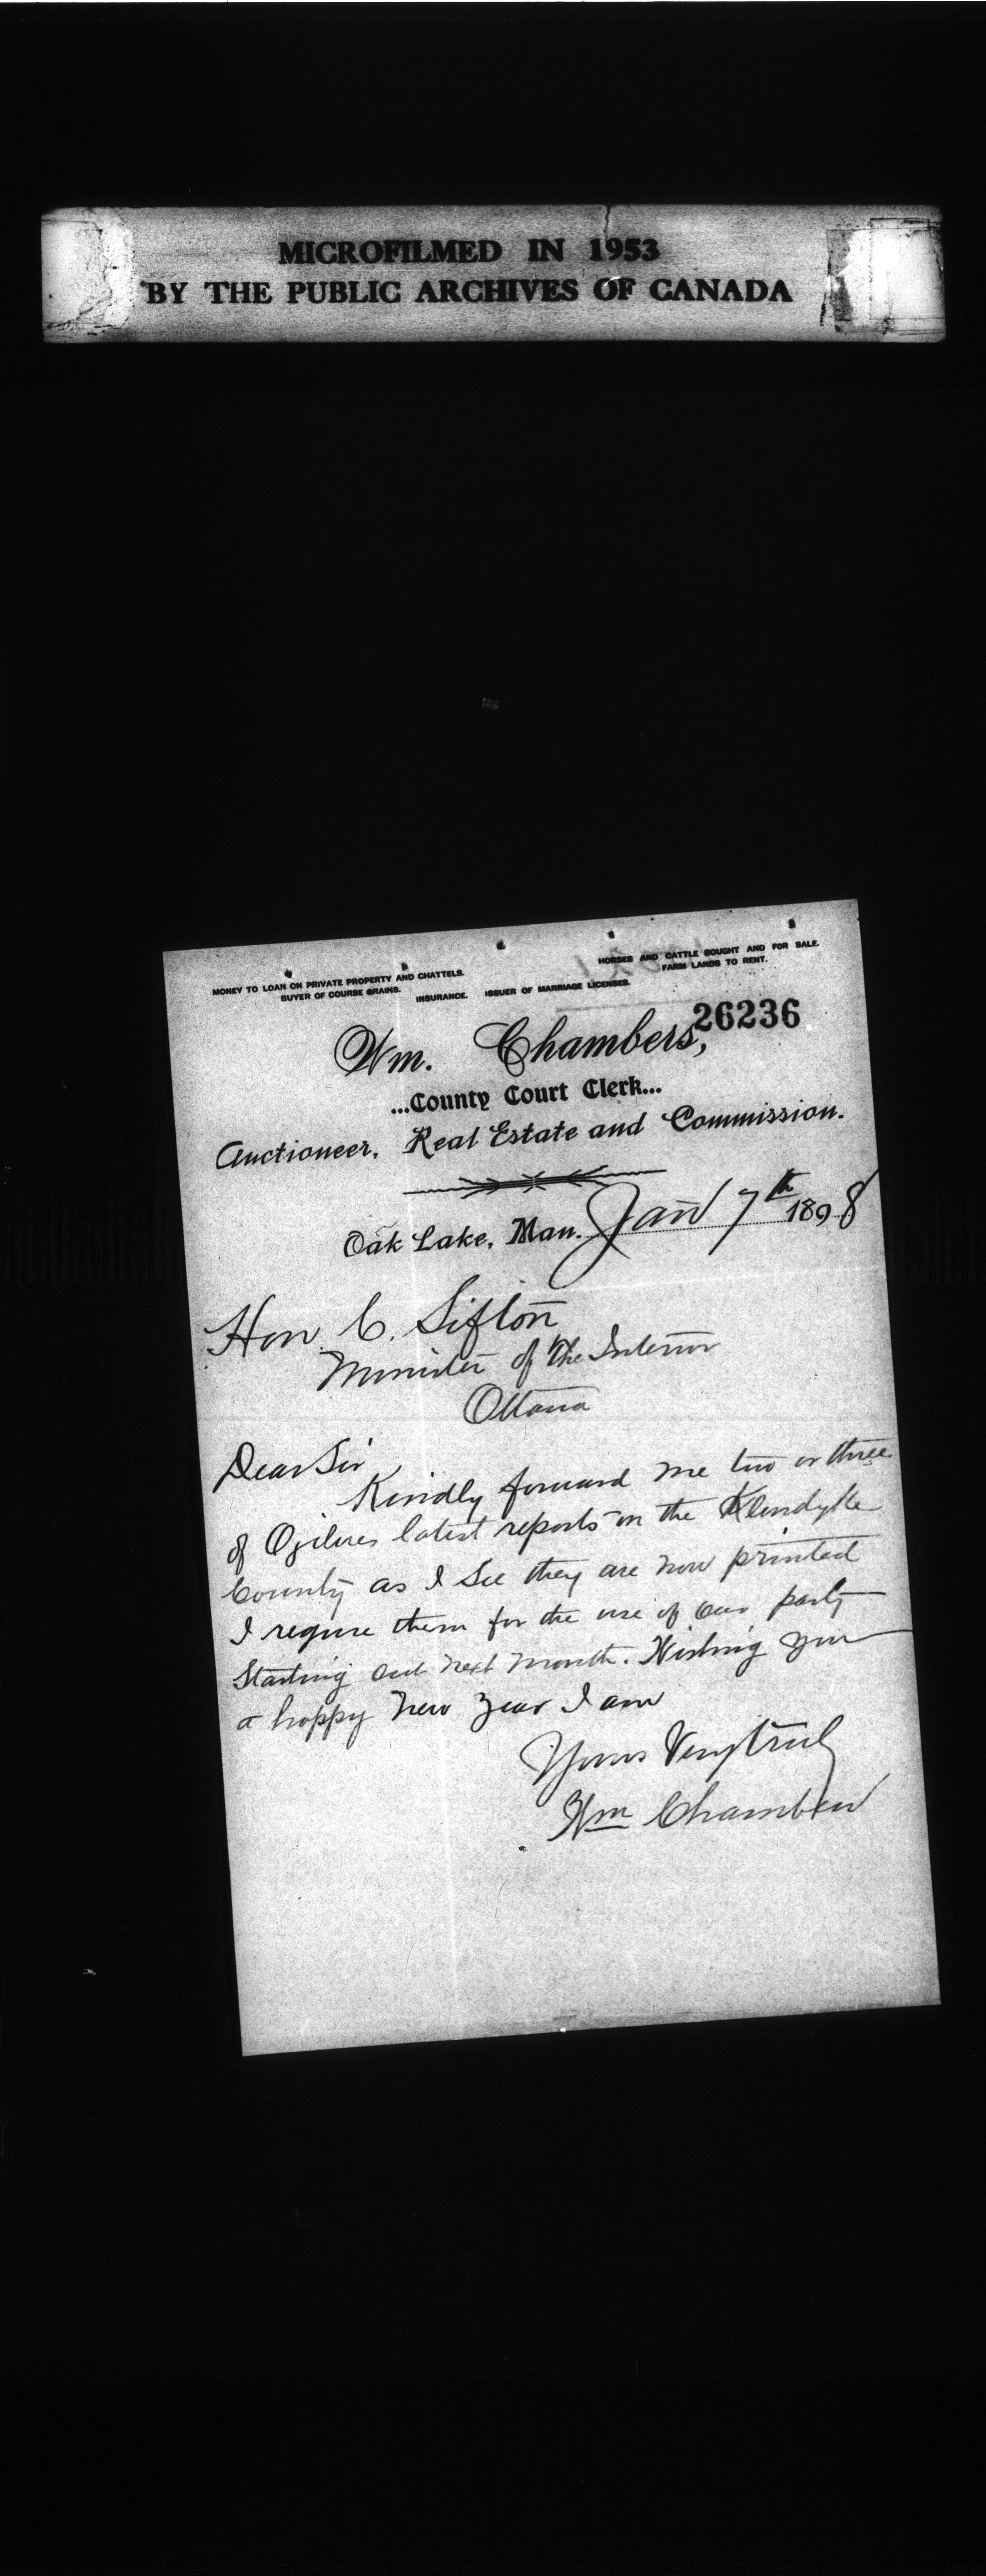 MICROFILMED IN 1953
BY THE PUBLIC ARCHIVES OF CANADA
MONEY TO LOAN ON PRIVATE PROPERTY AND CHATTELS.
BUYER OF COURSE GRAINS. INSURANCE. ISSUER OF MARRIAGE LICENSES.
HORSES AND CATTLE BOUGHT AND FOR SALE.
FARM LANDS TO RENT.
26236
Wm. Chambers,
...County Court Clerk...
Auctioneer, Real Estate and Commission.
Oak Lake, Man. Jan 7th 1898
Hon. C. Sifton
Minister of the Interior
Ottawa
Dear Sir
Kindly forward me two or three
of Ogilvies latest reports on the Klondyke
County as I see they are now printed
I require them for the use of our party
Starting out next month. Wishing you
a happy new year I am
Yours Very truly
Wm Chambers